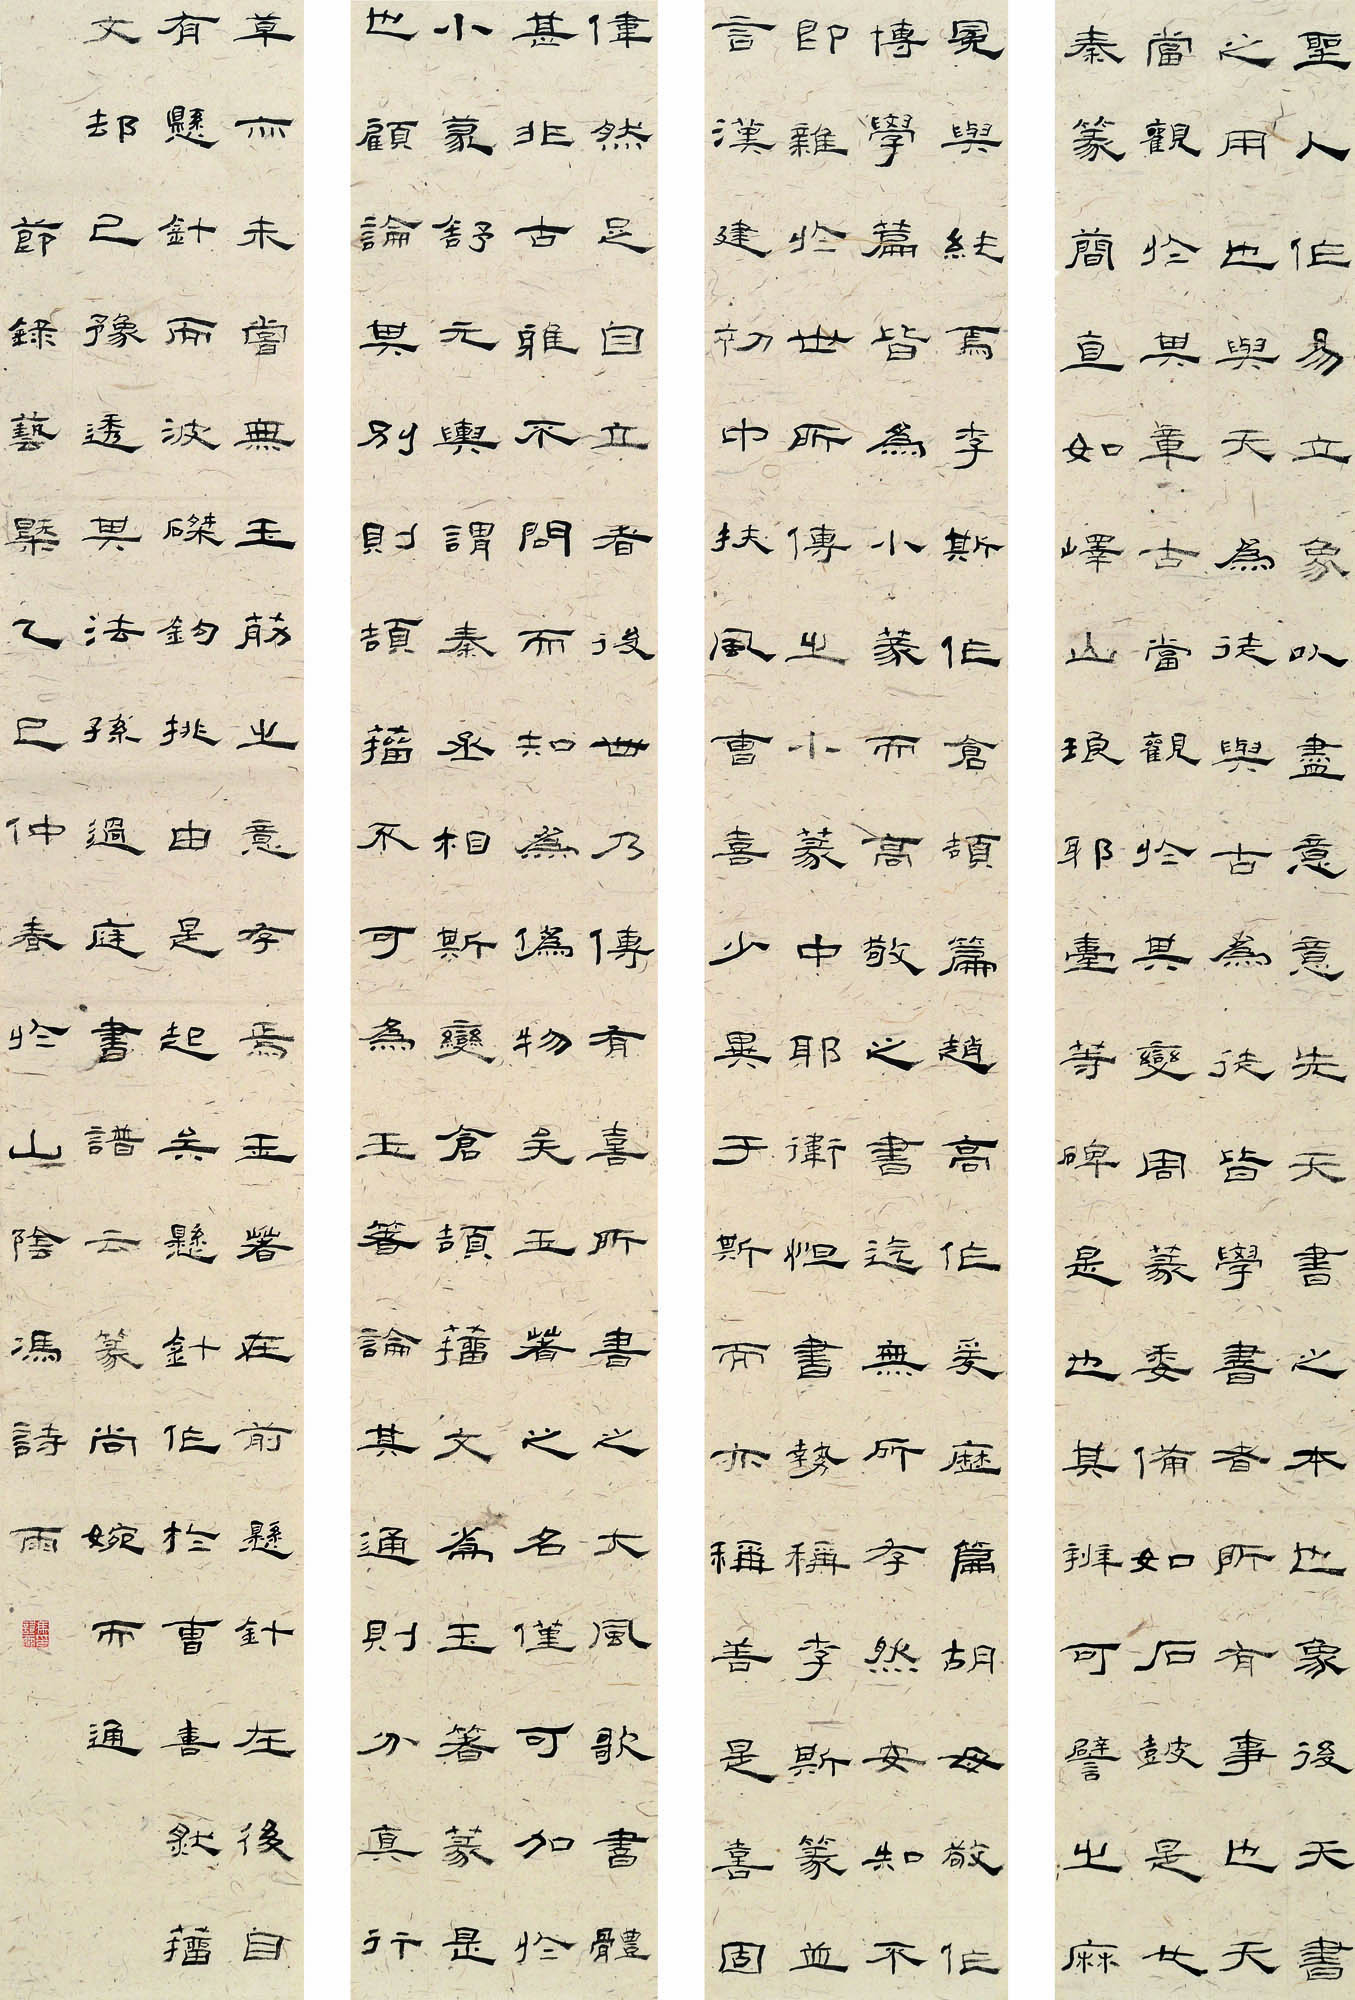 聖人作易立象以盡意意先天書之本也象後天書
之用也與天為徒與古為徒皆學書者所有事也天
當觀於其章古當觀於其變周篆委備如石鼓是也
秦篆簡直如嶧山琅邪臺等碑是也其辨可譬之麻
冕與純焉李斯作倉頡篇趙高作爰歷篇胡毋敬作
博學篇皆為小篆而高敬之書迄無所存然安知不
即雜於世所傳之小篆中耶衛恒書勢稱李斯篆並
言漢建初中扶風曹喜少異于斯而亦稱善是喜固
偉然足自立者後世乃傳有喜所書之大風歌書體
甚非古雅不問而知為偽物矣玉著之名僅可加於
小篆舒元輿謂秦丞相斯變倉頡籀文為玉箸篆是
也顧論其別則頡籀不可為玉箸論其通則分真行
草亦未嘗無玉筋之意存焉玉箸在前懸針在後自
有懸針而波磔鉤挑由是起矣懸針作於曹喜然籀
文却已豫透其法孫過庭書譜云篆尚婉而通
節錄藝槩乙巳仲春於山陰馮詩雨